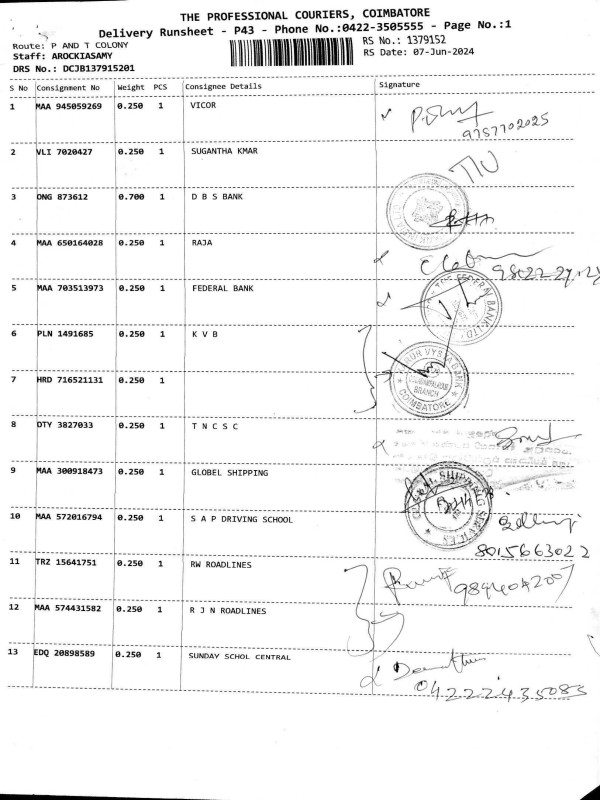 THE PROFESSIONAL COURIERS, COIMBATORE
Delivery Runsheet - P43 - Phone No.:0422-3505555 - Page No.:1
Route: P AND T COLONY
RS No.: 1379152
Staff: AROCKIASAMY
RS Date: 07-Jun-2024
DRS No.: DCJB137915201
S No Consignment No Weight PCS Consignee Details Signature
1 MAA 945059269 0.250 1 VICOR
9787702025
2 VLI 7020427 0.250 1 SUGANTHA KMAR
3 ONG 873612 0.700 1 D B S BANK
4 MAA 650164028 0.250 1 RAJA
5 MAA 703513973 0.250 1 FEDERAL BANK
THE FEDERAL BANK LTD.
6 PLN 1491685 0.250 1 K V B
VYSYA BANK
BRANCH
COIMBATORE
7 HRD 716521131 0.250 1
8 DTY 3827033 0.250 1 T N C S C
9 MAA 300918473 0.250 1 GLOBEL SHIPPING
SHIPPING SERVICES
10 MAA 572016794 0.250 1 S A P DRIVING SCHOOL
8015663022
11 TRZ 15641751 0.250 1 RW ROADLINES
9894042007
12 MAA 574431582 0.250 1 R J N ROADLINES
13 EDQ 20898589 0.250 1 SUNDAY SCHOL CENTRAL
04222435085